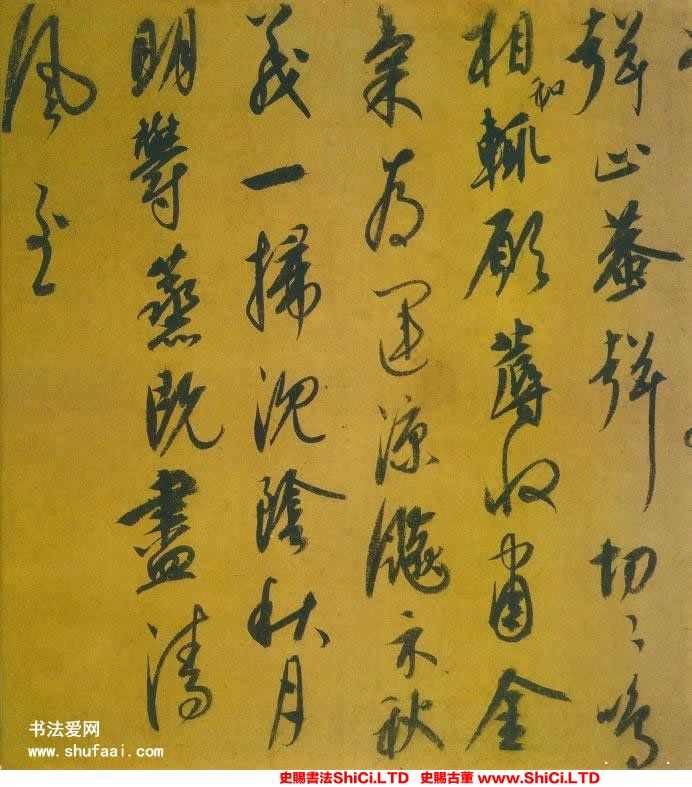 聲正蛬聲切〻鳴
相和輒願蓐收肅金
氣為運涼飈示秋
義一掃沉陰秋月
明鬱蒸既盡清
風至
书法爱网
www.shufaai.com
史賜書法ShiCi.LTD 史賜古董 www.ShiCi.LTD